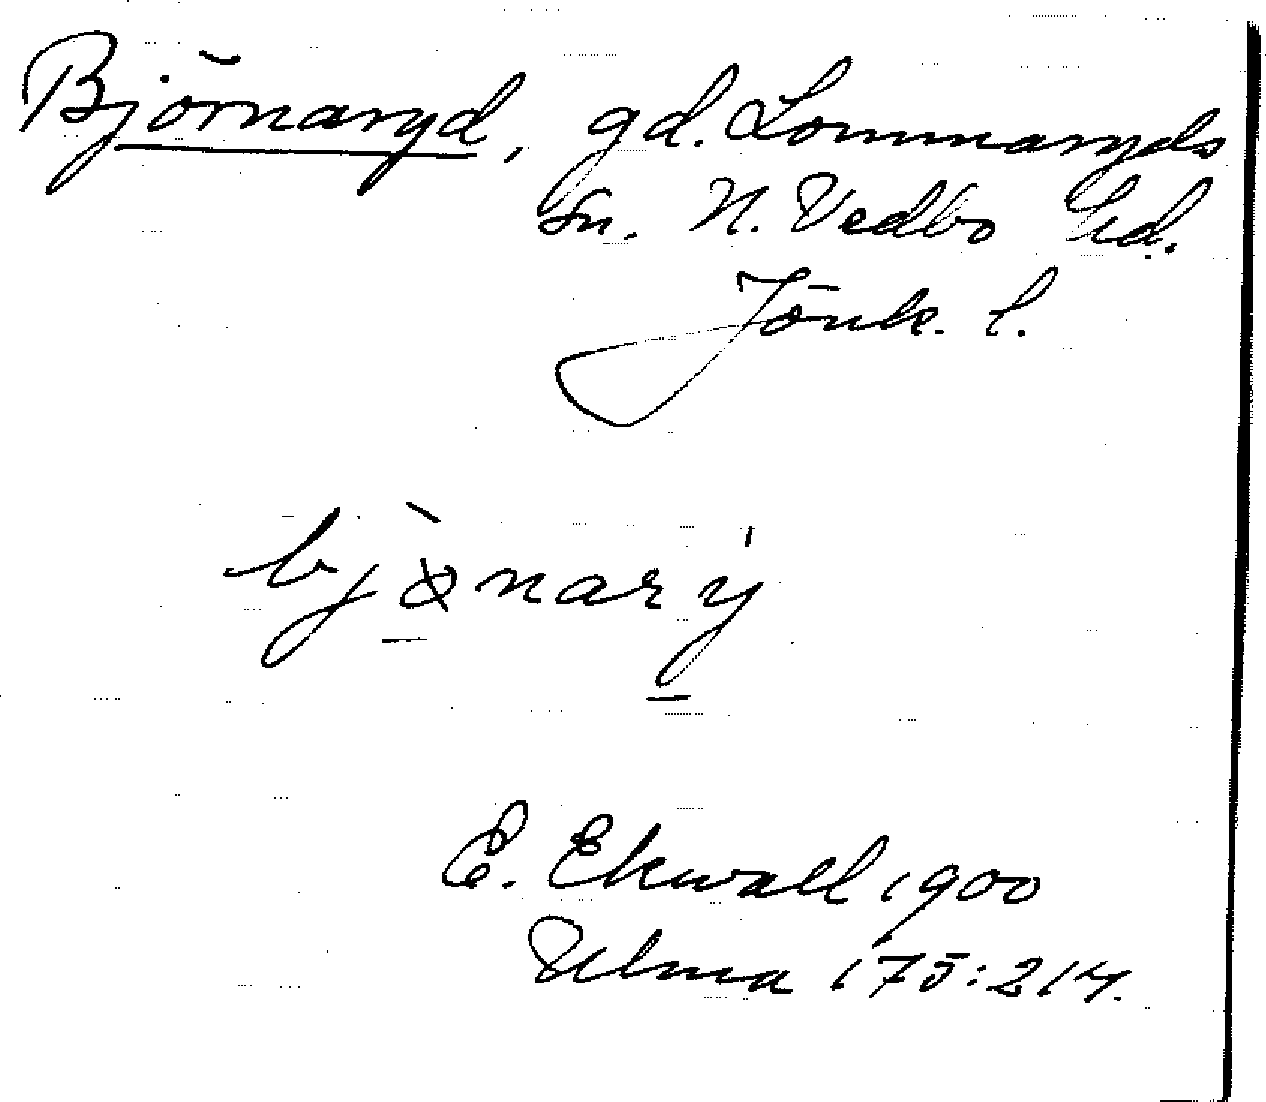 Björnaryd, gd. Lommaryds
sn. N. Vedbo hd.
Jönk. l.
bjò̱narý̱
E. Ekwall 1900
Ulma 175:214.